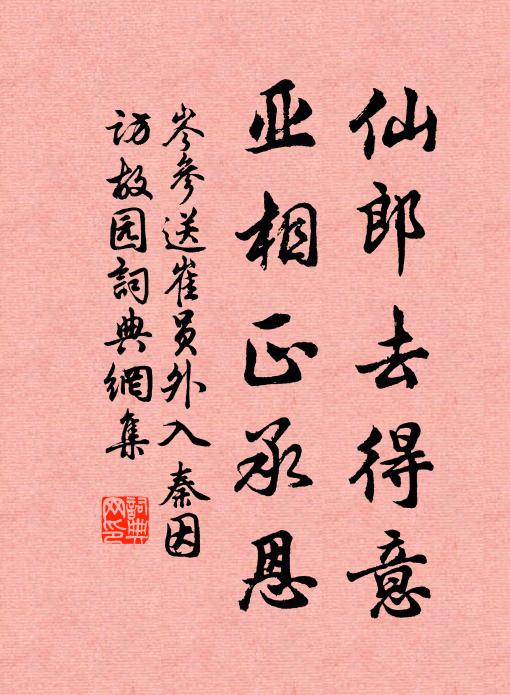 仙郎去得意
亚相正承恩
岑参送崔员外入秦因
访故园词典网集
詞典
网印